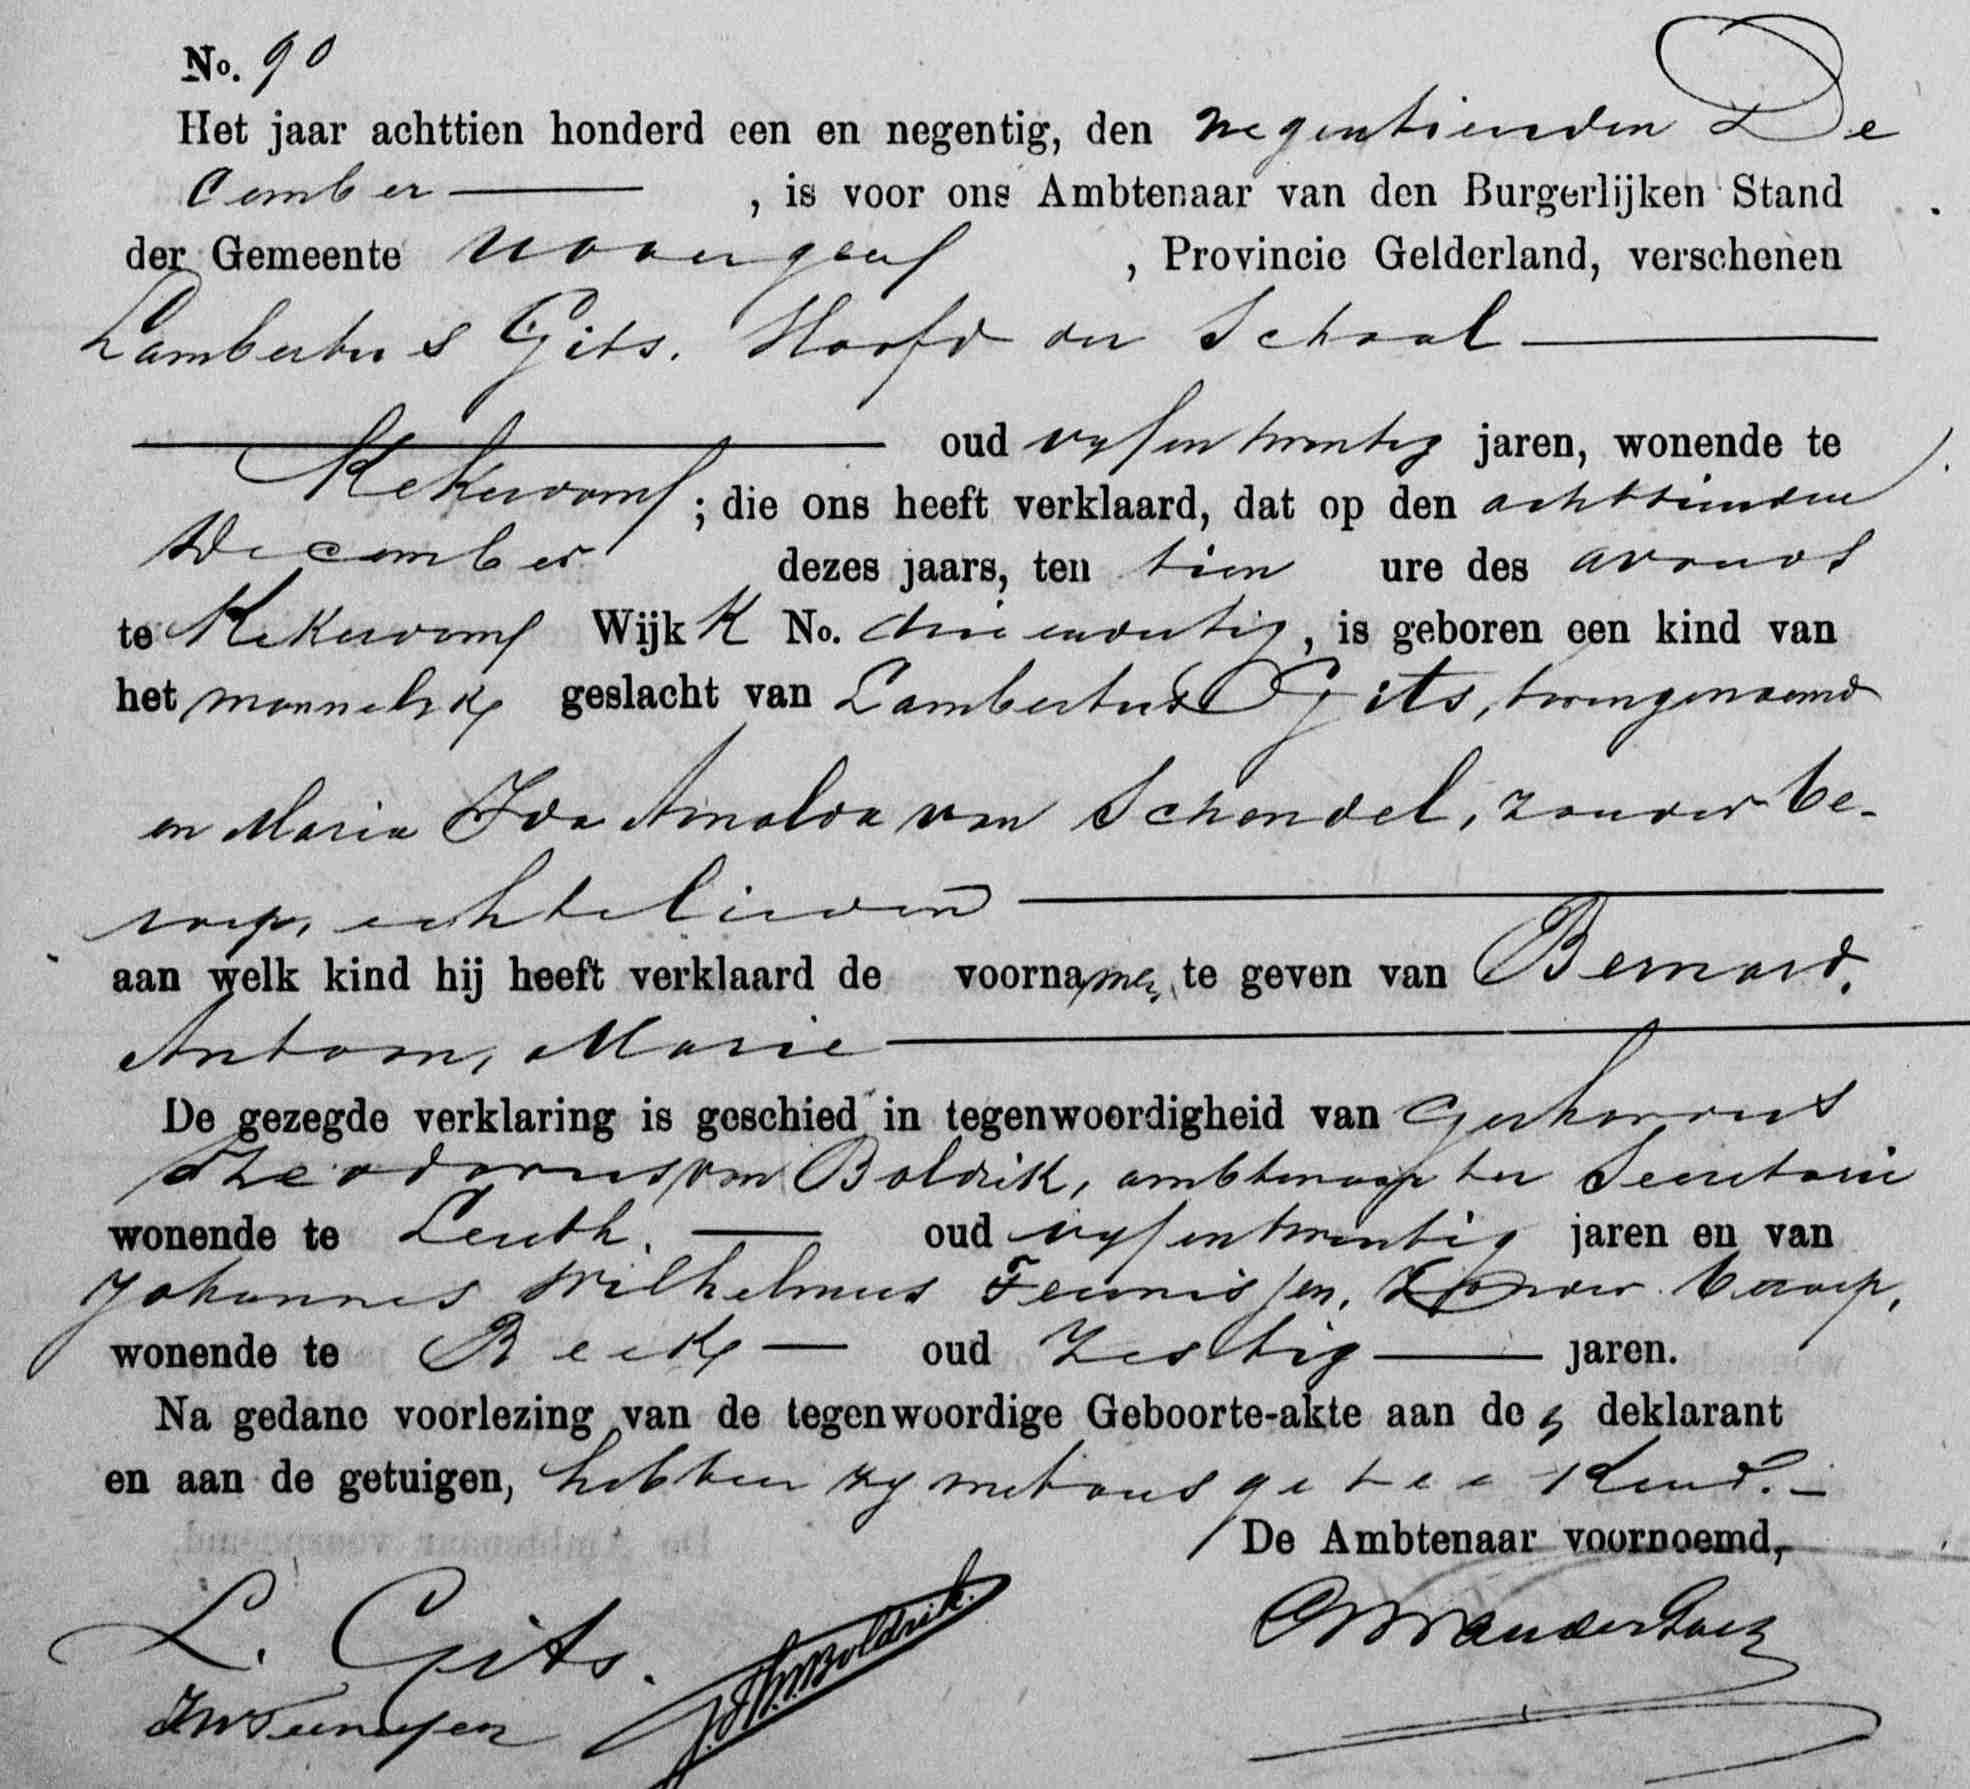 No. 90
Het jaar achttien honderd een en negentig, den negentienden De
cember , is voor ons Ambtenaar van den Burgerlijken Stand
der Gemeente , Provincie Gelderland, verschenen
Lambertus Gits, Hoofd der School
oud vyfentwintig jaren, wonende te
Kekerdom ; die ons heeft verklaard, dat op den achttienden
December dezes jaars, ten tien ure des avonds
te Kekerdom Wijk K No. drieendertig, is geboren een kind van
het mannelyk geslacht van Lambertus Gits, bovengenoemd
en Maria Ida Arnolda van Schendel, zonder be-
roep, echtelieden
aan welk kind hij heeft verklaard de voornamen te geven van Bernard,
Antoon, Marie
De gezegde verklaring is geschied in tegenwoordigheid van Gerhardus
Theodorus van Boldrik, ambtenaar ter Secretarie
wonende te Leuth. oud vyfentwintig jaren en van
Johannes Wilhelmus Teunissen, Zonder beroep,
wonende te Beek oud Zestig jaren.
Na gedane voorlezing van de tegenwoordige Geboorte-akte aan de n deklarant
en aan de getuigen, hebben zy met ons geteekend. -
De Ambtenaar voornoemd,
L. Gits.
JW Teunissen
G. Th. v. Boldrik.